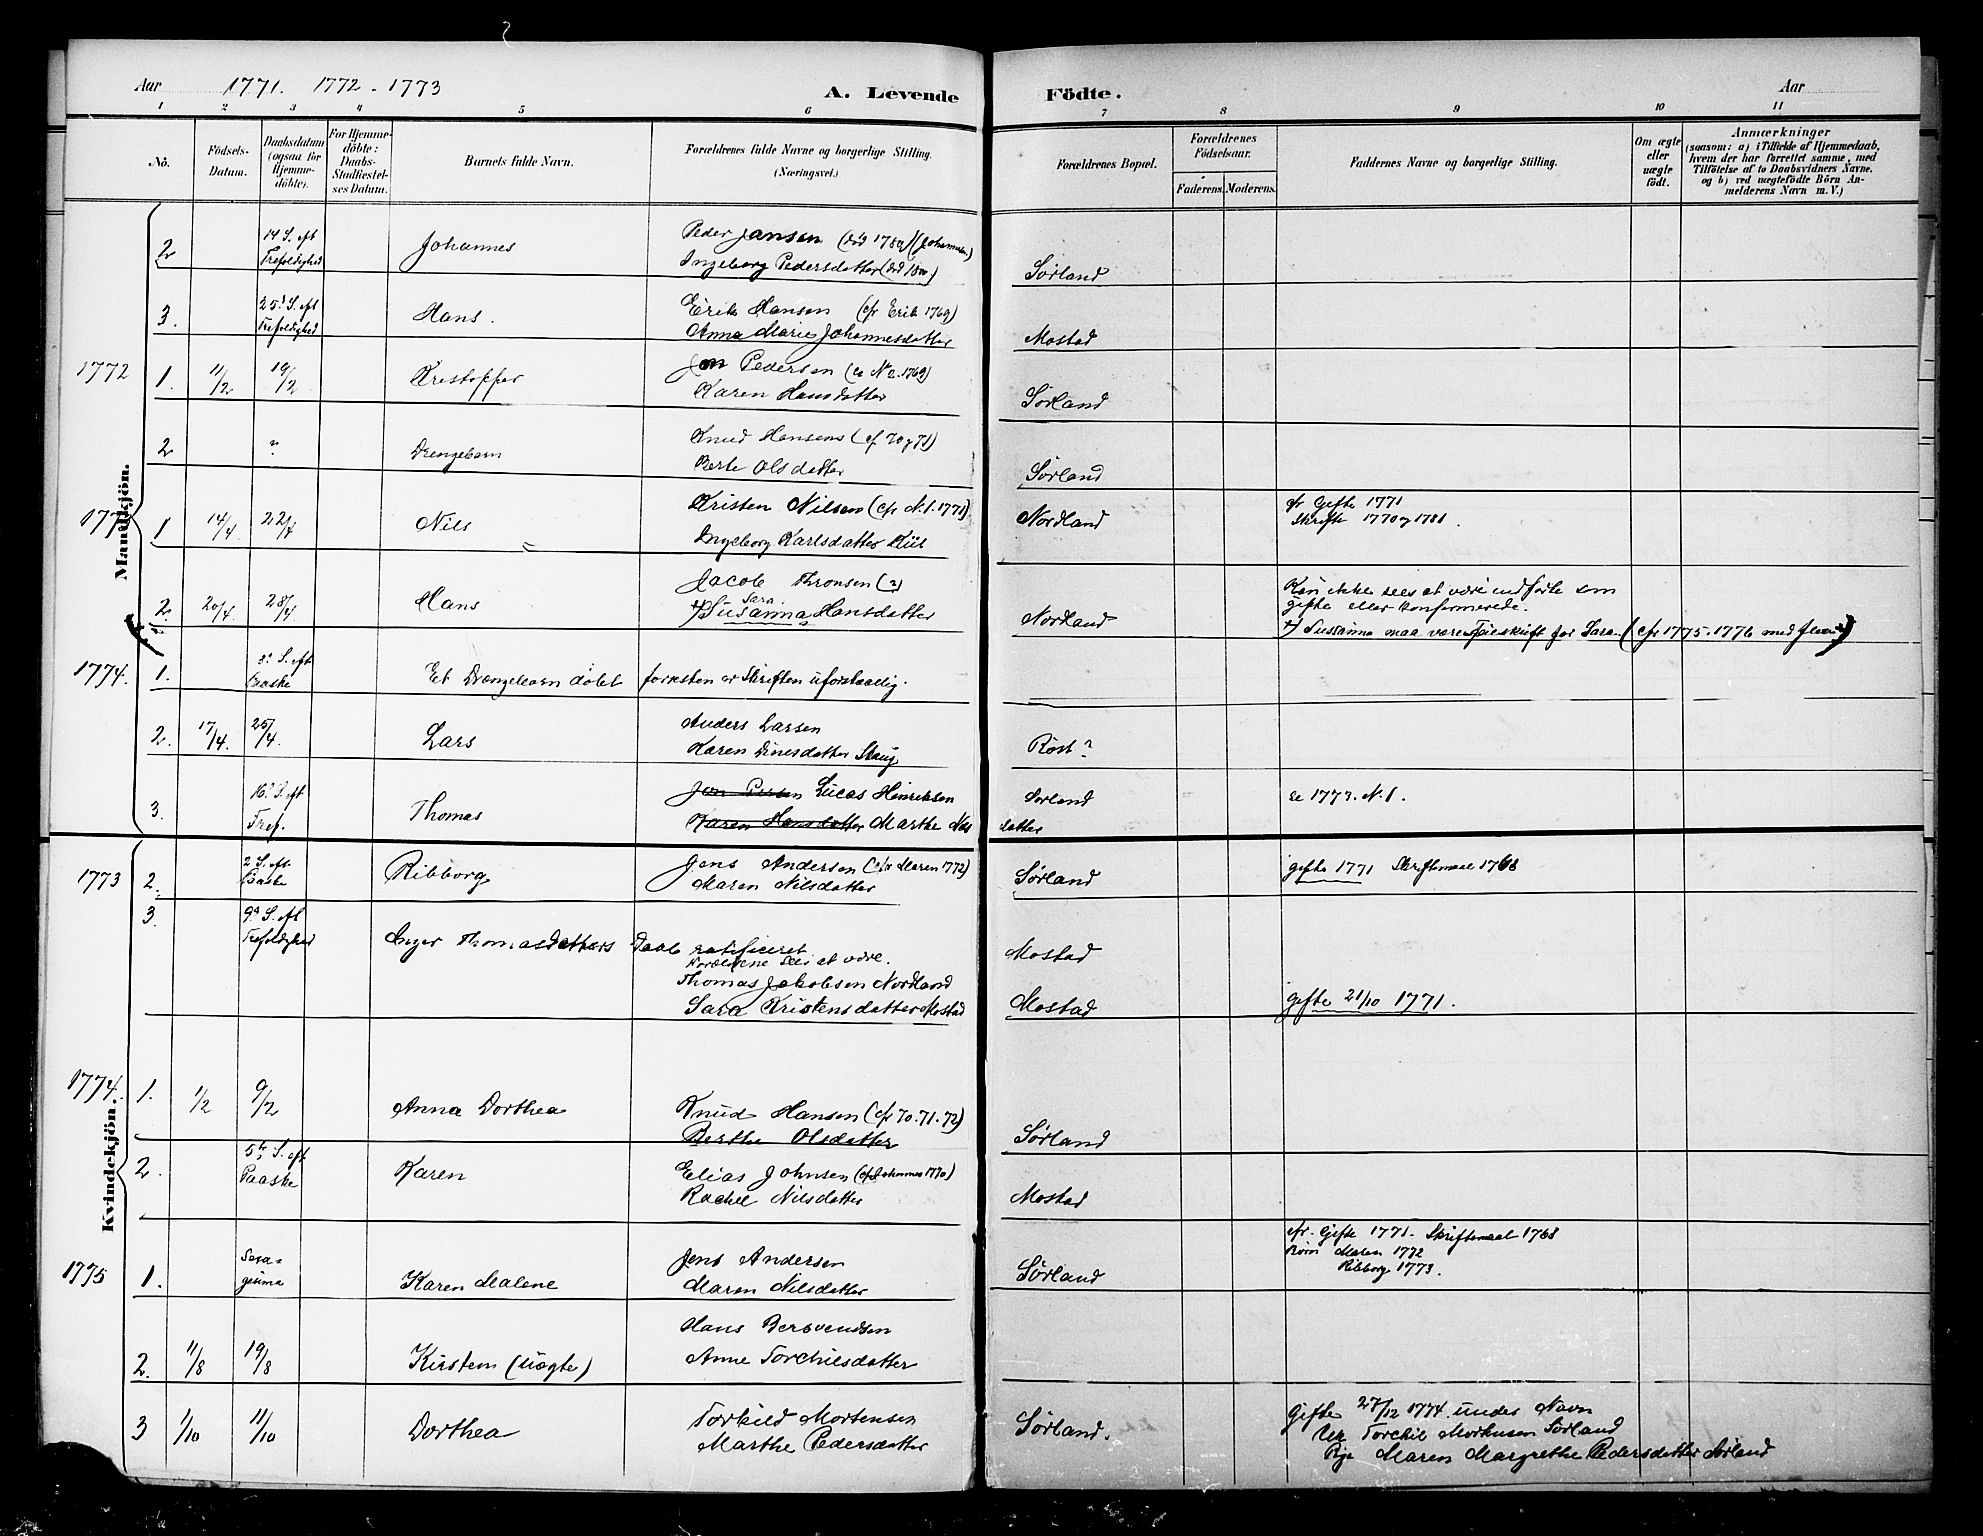 Aar 1771. 1772 - 1773 A. Levende Födte. Aar
1 2 3 4 5 6 7 8 9 10 11
Nô. Födsels-Datum. Daabsdatum (ogsaa for Hjemmedöbte). For Hjemmedöbte: Daabs-Stadfæstelses Datum. Barnets fulde Navn. Forældrenes fulde Navne og borgerlige Stilling. (Næringsvei.) Forældrenes Bopæl. Forældrenes Födselsaar. Faderens. Moderens. Faddernes Navne og borgerlige Stilling. Om ægte eller uægte födt. Anmærkninger (saasom: a) i Tilfælde af Hjemmedaab, hvem der har forrettet samme, med Tilföielse af to Daabsvidners Navne, og b) ved uægtefödte Börn Anmelderens Navn m. V.)
Mandkjön.
2 14 S. eft Trefoldighed Johannes Peder Jansen (død 1789) (Johannesen)
Ingeborg Pedersdatter (død 1800) Sørland
3. 25. S. eft Trefoldighed Hans. Erik Hansen (cfr Erik 1769)
Anna Marie Johannesdatter Mostad
1772 1. 11/2 19/2 Kristoffer Jon Pedersen (se N 2. 1769)
Karen Hansdatter Sørland
2 ? Drengebarn Knud Hansens (cf 70 og 71)
Berte Olsdatter Sørland
1773 1 14/4 22/4 Nils Kristen Nilsen (cfr N. 1. 1771) Nordland cfr Gifte 1771
Skrifte 1770 og 1781.
Ingeborg Karlsdatter Kiil
2. 20/4 28/4 Hans Jacob Thronsen (?)
Sara
+) Susanna Hansdatter Nordland Kan ikke sees at være indførte som
gifte eller konfirmerede.
+) Sussanna maa være Feilskrift for Sara (cfr 1775-1776 med flere)
1774. 1. 3. S. eft Paaske Et Drengebarn døbt forresten er Skriften uforstaaelig.
2. 17/4. 25/4. Lars Anders Larsen
Karen Dinesdatter Stang Røst?
3. 16. S. eft Tref. Thomas Jon Persen Lucas Hinriksen Sørland se 1773. N. 1.
Karen Hansdatter Marthe Nils datter
Kvindekjön.
1773 2. 2 S. eft. Paaske Ribborg Jens Andersen (cfr Maren 1772)
Maren Nilsdatter Sørland gifte 1771 Skriftemaal 1768
3. 9. S. eft Trefoldighed Inger Thomasdatters Daab ratificeret
Forældrene sees at være. Mostad
Thomas Jakobsen Nordland
Sara Kristensdatter Mostad Mostad gifte 21/10 1771.
1774. 1. 1/2 9/2 Anna Dorthea Knud Hansen (cfr 70. 71. 72)
Berthe Olsdatter Sørland
2. 5te S. eft Paaske Karen Elias Johnsen (cfr Johannes 1770)
Rachel Nilsdatter Mostad
1775 1. Sexagesima Karen Malene Jens Andersen
Maren Nilsdatter Sørland cfr. Gifte 1771. Skriftemaal 1768
Børn Maren 1772
Ribborg 1773.
2. 11/8 19/8 Kirsten (uægte) Hans Bersvendsen
Anne Torchilsdatter
3 1/10 11/10 Dorthea Torkild Mortensen
Marthe Pedersdatter Sørland. Gifte 27/12 1774. under Navn
Uk Torchil Morthesen Sørland
Pige Maren Margrethe Pedersdatter Sørland